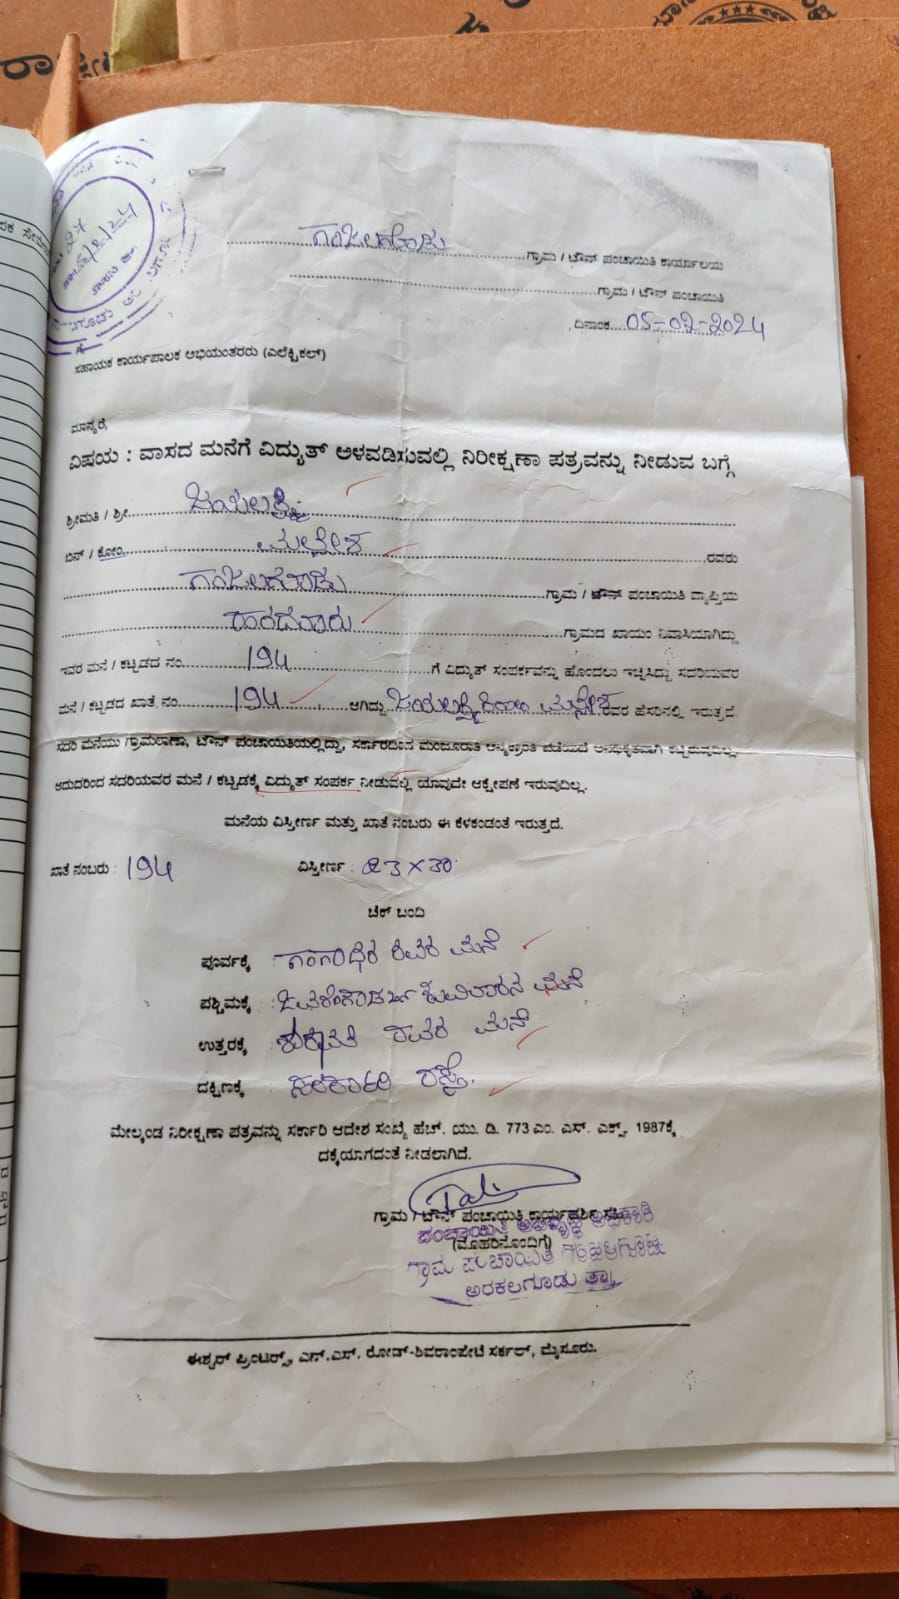 ಗಂಜಲಗೂಡು ಗ್ರಾಮ / ಟೌನ್ ಪಂಚಾಯಿತಿ ಕಾರ್ಯಾಲಯ
ಗ್ರಾಮ / ಟೌನ್ ಪಂಚಾಯಿತಿ
ದಿನಾಂಕ 05-07-2024
ಸಹಾಯಕ ಕಾರ್ಯಪಾಲಕ ಅಭಿಯಂತರರು (ಎಲೆಕ್ಟ್ರಿಕಲ್)
ಮಾನ್ಯರೆ,
ವಿಷಯ : ವಾಸದ ಮನೆಗೆ ವಿದ್ಯುತ್ ಅಳವಡಿಸುವಲ್ಲಿ ನಿರೀಕ್ಷಣಾ ಪತ್ರವನ್ನು ನೀಡುವ ಬಗ್ಗೆ
ಶ್ರೀಮತಿ / ಶ್ರೀ ಜಯಲಕ್ಷ್ಮಿ
ಬಿನ್ / ಕೋಂ ಮಲ್ಲೇಶ ರವರು
ಗಂಜಲಗೂಡು ಗ್ರಾಮ / ಟೌನ್ ಪಂಚಾಯಿತಿ ವ್ಯಾಪ್ತಿಯ
ಗ್ರಾಮದ ಖಾಯಂ ನಿವಾಸಿಯಾಗಿದ್ದು
ಇವರ ಮನೆ / ಕಟ್ಟಡದ ನಂ 194 ಗೆ ವಿದ್ಯುತ್ ಸಂಪರ್ಕವನ್ನು ಹೊಂದಲು ಇಚ್ಛಿಸಿದ್ದು ಸದರಿಯವರ
ಮನೆ / ಕಟ್ಟಡದ ಖಾತೆ ನಂ 194 ಆಗಿದ್ದು ಜಯಲಕ್ಷ್ಮಿ ಕೋಂ ಮಲ್ಲೇಶ ರವರ ಹೆಸರಿನಲ್ಲಿ ಇರುತ್ತದೆ.
ಸದರಿ ಮನೆಯು ಗ್ರಾಮಠಾಣಾ, ಟೌನ್ ಪಂಚಾಯಿತಿಯಲ್ಲಿದ್ದು, ಸರ್ಕಾರದಿಂದ ಮಂಜೂರಾತಿ ಅನ್ಯಕ್ರಾಂತಿ ಪಡೆಯದೆ ಅನಧಿಕೃತವಾಗಿ ಕಟ್ಟಿರುವುದಿಲ್ಲ.
ಆದುದರಿಂದ ಸದರಿಯವರ ಮನೆ / ಕಟ್ಟಡಕ್ಕೆ ವಿದ್ಯುತ್ ಸಂಪರ್ಕ ನೀಡುವಲ್ಲಿ ಯಾವುದೇ ಆಕ್ಷೇಪಣೆ ಇರುವುದಿಲ್ಲ.
ಮನೆಯ ವಿಸ್ತೀರ್ಣ ಮತ್ತು ಖಾತೆ ನಂಬರು ಈ ಕೆಳಕಂಡಂತೆ ಇರುತ್ತದೆ.
ಖಾತೆ ನಂಬರು : 194 ವಿಸ್ತೀರ್ಣ : 23 X 30
ಚೆಕ್ ಬಂದಿ
ಪೂರ್ವಕ್ಕೆ ಗಂಗಾಧರ ರವರ ಮನೆ
ಪಶ್ಚಿಮಕ್ಕೆ ಮನೆ
ಉತ್ತರಕ್ಕೆ ರವರ ಮನೆ
ದಕ್ಷಿಣಕ್ಕೆ ಸರಕಾರಿ ರಸ್ತೆ.
ಮೇಲ್ಕಂಡ ನಿರೀಕ್ಷಣಾ ಪತ್ರವನ್ನು ಸರ್ಕಾರಿ ಆದೇಶ ಸಂಖ್ಯೆ ಹೆಚ್. ಯು. ಡಿ. 773 ಎಂ. ಎಸ್. ಎಕ್ಸ್. 1987ಕ್ಕೆ
ದಕ್ಕೆಯಾಗದಂತೆ ನೀಡಲಾಗಿದೆ.
ಗ್ರಾಮ / ಟೌನ್ ಪಂಚಾಯಿತಿ ಕಾರ್ಯದರ್ಶಿಗಳ ಸಹಿ
(ಮೊಹರಿನೊಂದಿಗೆ)
ಪಂಚಾಯಿತಿ ಅಭಿವೃದ್ಧಿ ಅಧಿಕಾರಿ
ಗ್ರಾಮ ಪಂಚಾಯಿತಿ ಗಂಜಲಗೂಡು
ಅರಕಲಗೂಡು ತಾ||
ಈಶ್ವರ್ ಪ್ರಿಂಟರ್ಸ್, ಎನ್.ಎಸ್. ರೋಡ್-ಶಿವರಾಂಪೇಟೆ ಸರ್ಕಲ್, ಮೈಸೂರು.